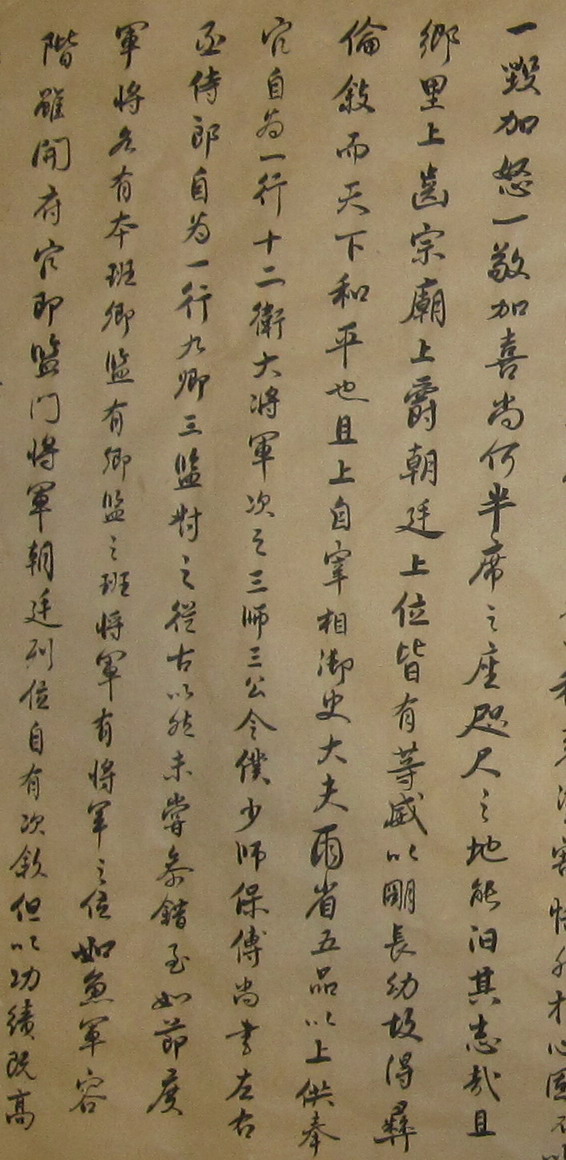 心固不以
一毀加怒一敬加喜尚何半席之座咫尺之地能汩其志哉且
鄉里上齒宗廟上爵朝廷上位皆有等威以明長幼故得彝
倫敘而天下和平也且上自宰相御史大夫兩省五品以上供奉
官自為一行十二衛大將軍次之三師三公令僕少師保傅尚書左右
丞侍郎自為一行九卿三監對之從古以然未嘗參錯至如節度
軍將各有本班卿監有卿監之班將軍有將軍之位如魚軍容
階雖開府官即監門將軍朝廷列位自有次敘但以功績既高